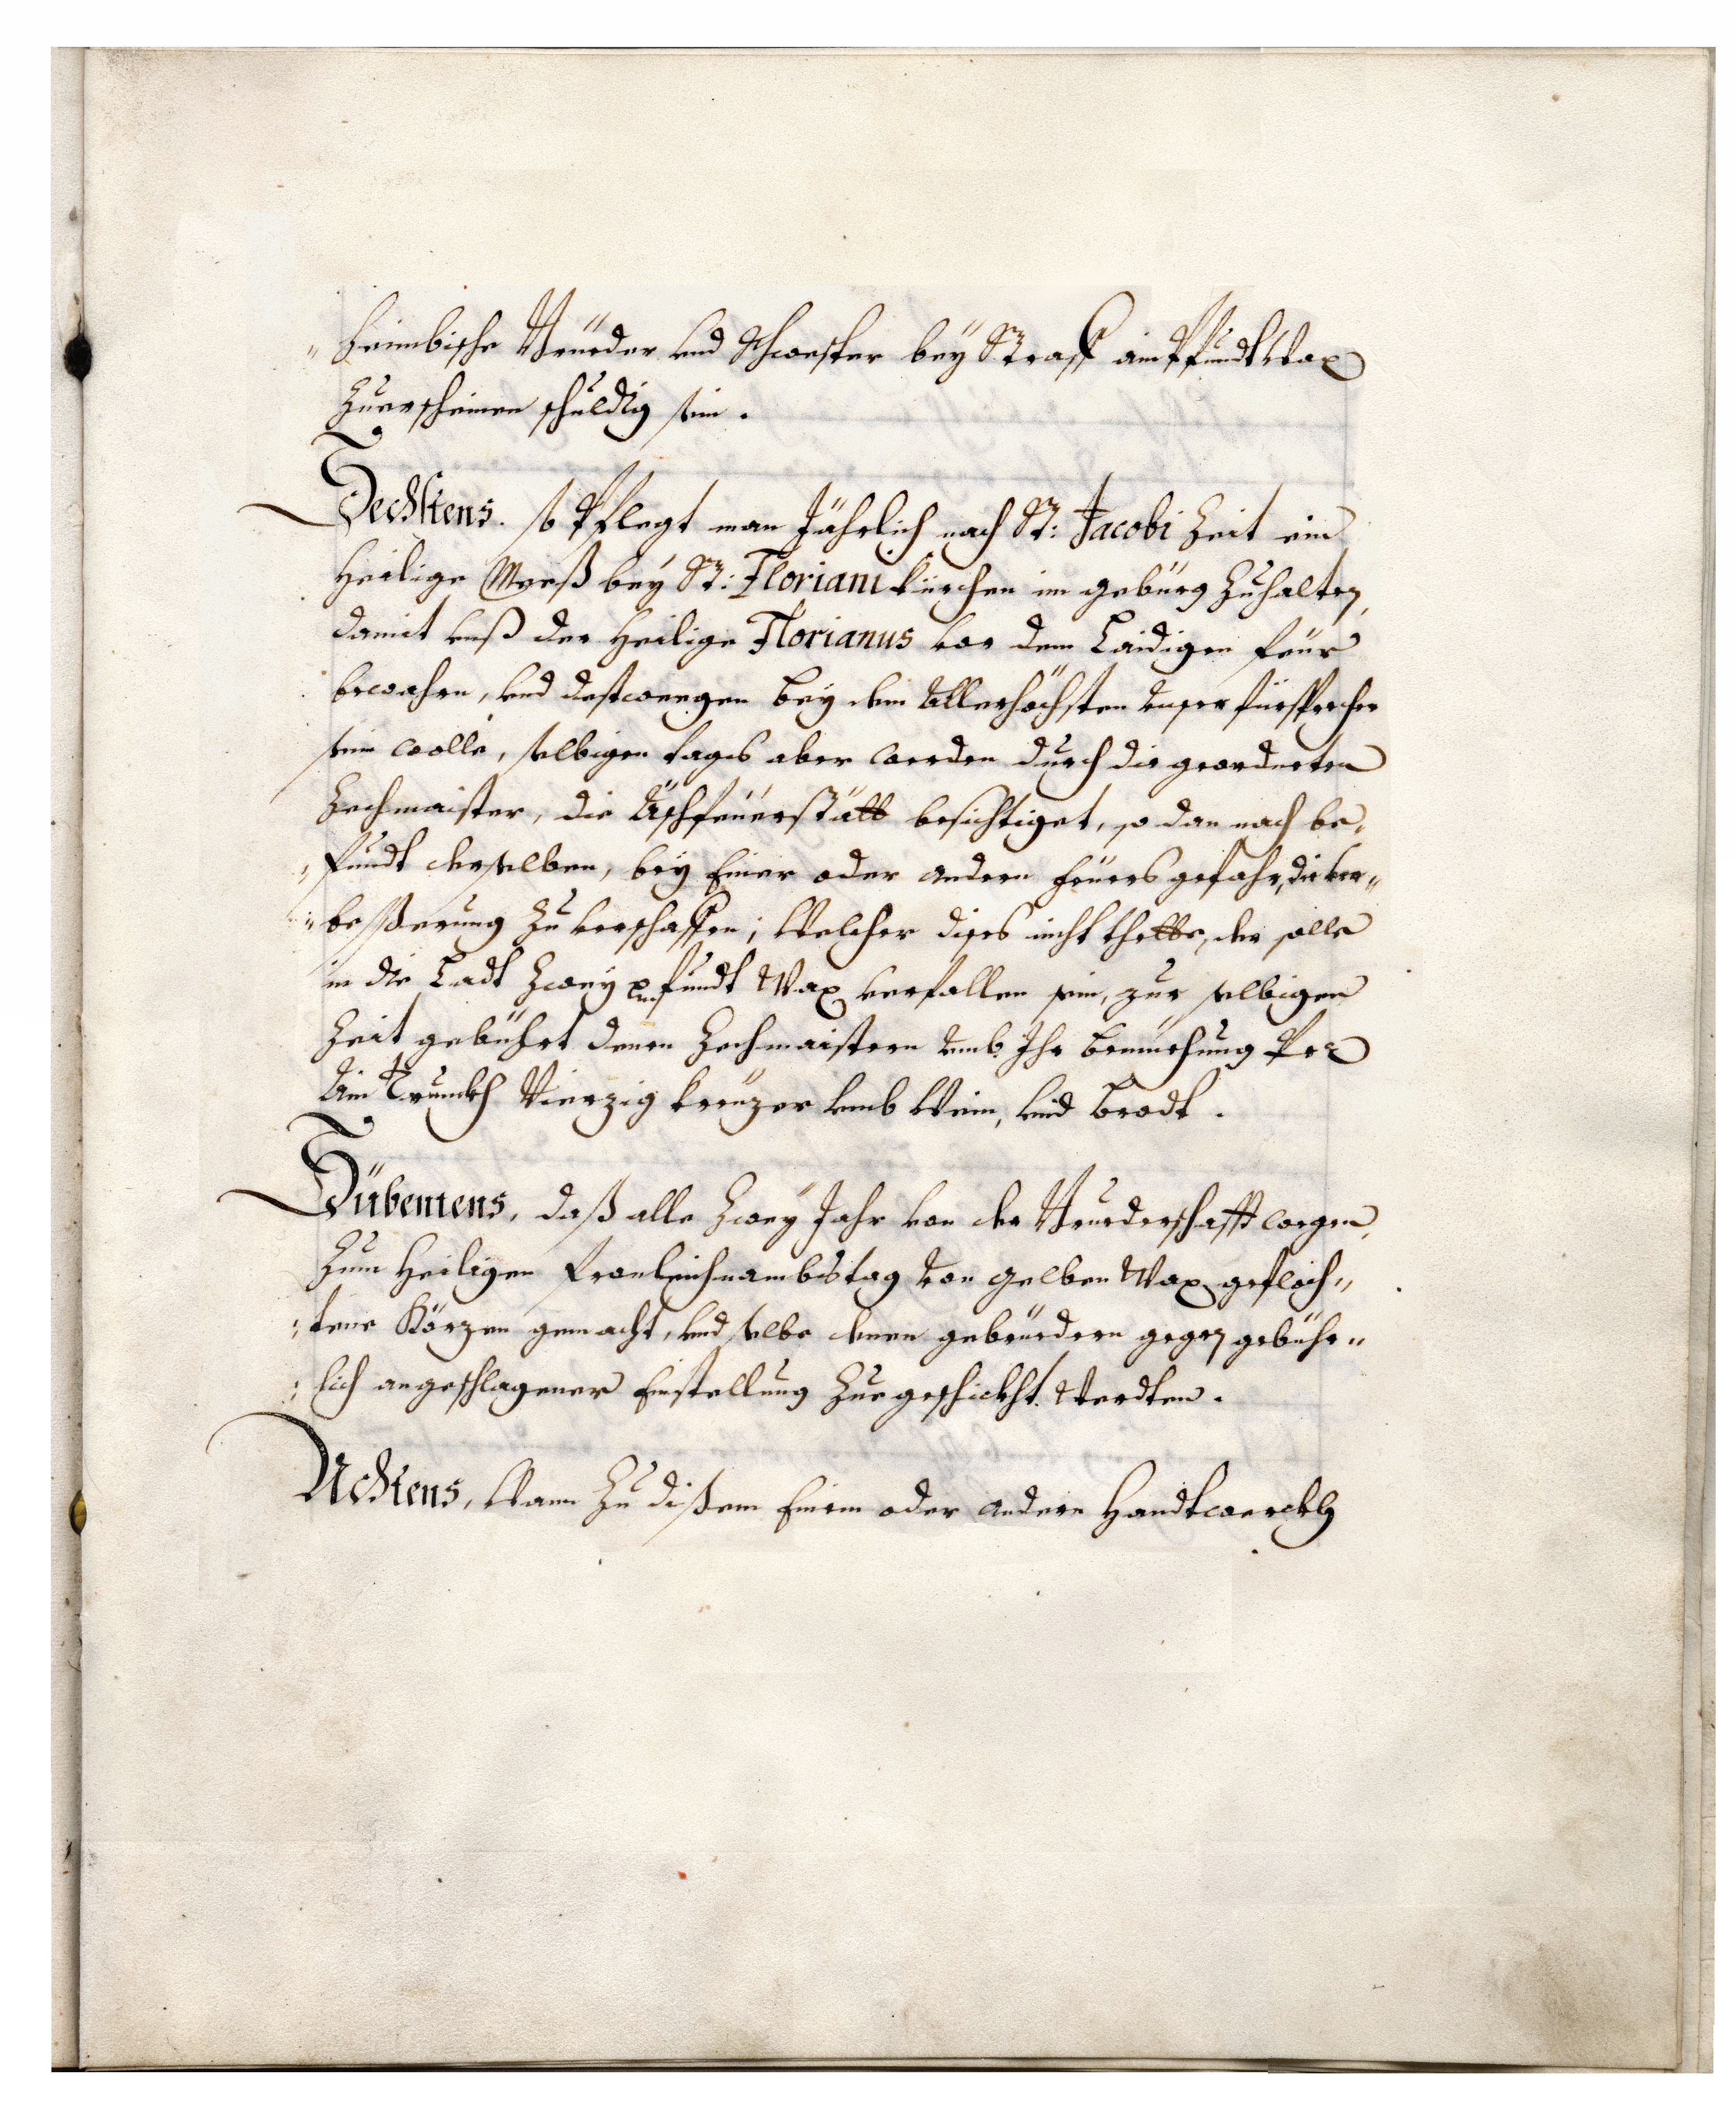 "heimbische Brueder vnd Schwester bey Straff ain Pfundt Wax
Zuerscheinen schuldig sein.
Sechstens. so Pflegt man Jährlich nach St: Jacobi Zeit ein
Heilige Meeß bey St: Floriani Kürchen im gebürg Zuhalten,
damit vnß der Heilige Florianus vor dem Laidigen feur
bewahre, vnd destweegen bey dem Allerhöchsten vnser fürsprecher
sein wolle, selbigen tages aber werden durch die geordneten
Zechmaister, die Äschfeüerstätt besichtiget, so dan nach be,
"fundt derselben, bey Einer oder andern feüers gefahr, die ver"
"beßerung Zu verschaffen; Welcher dises nicht thette, der solle
in die Ladt Zwey Pfundt Wax verfallen sein, zur selbigen
Zeit gebührt denen Zechmaistern vmb Ihr bemüehung Per
Ain Trunckh Vierzig kreüzer vmb Wein, vnd brodt.
Sübentens, daß alle Zwey Jahr von der Bruederschafft wegen,
Zum Heiligen fronleichnambstag von gelben Wax gefloch"
"tene Körzen gemacht, vnd selbe denen gebrüedern gegen gebühr"
"lich angeschlagener Einstellung Zuegeschickht Werdten.
Achtens, Wann Zu dißem Einem oder andern Handtwerckh